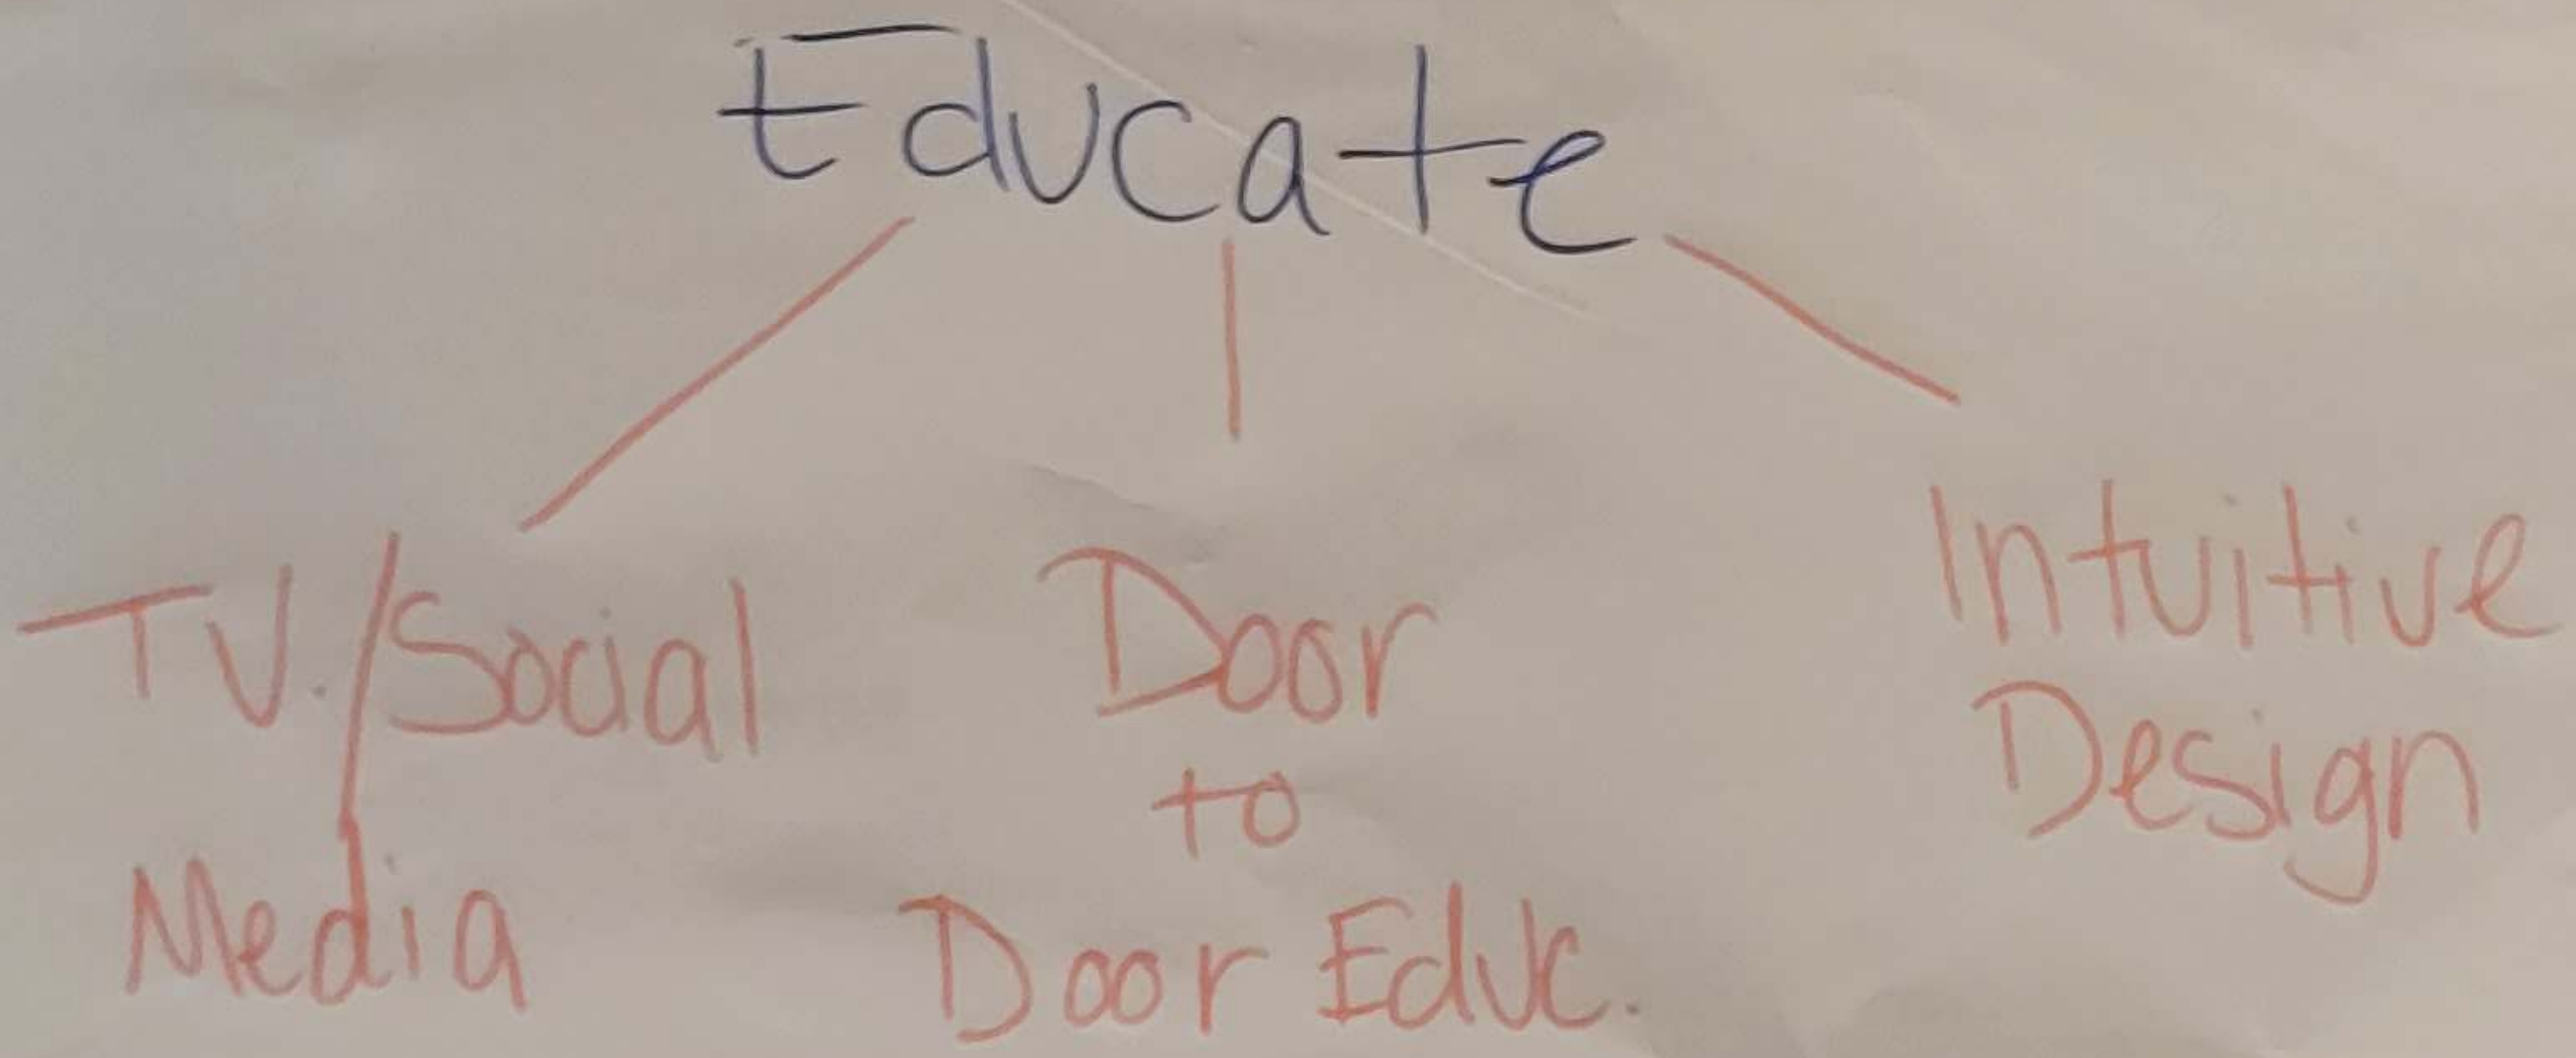 Educate
TV./Social
Media
Door
to
Door Educ.
Intuitive
Design